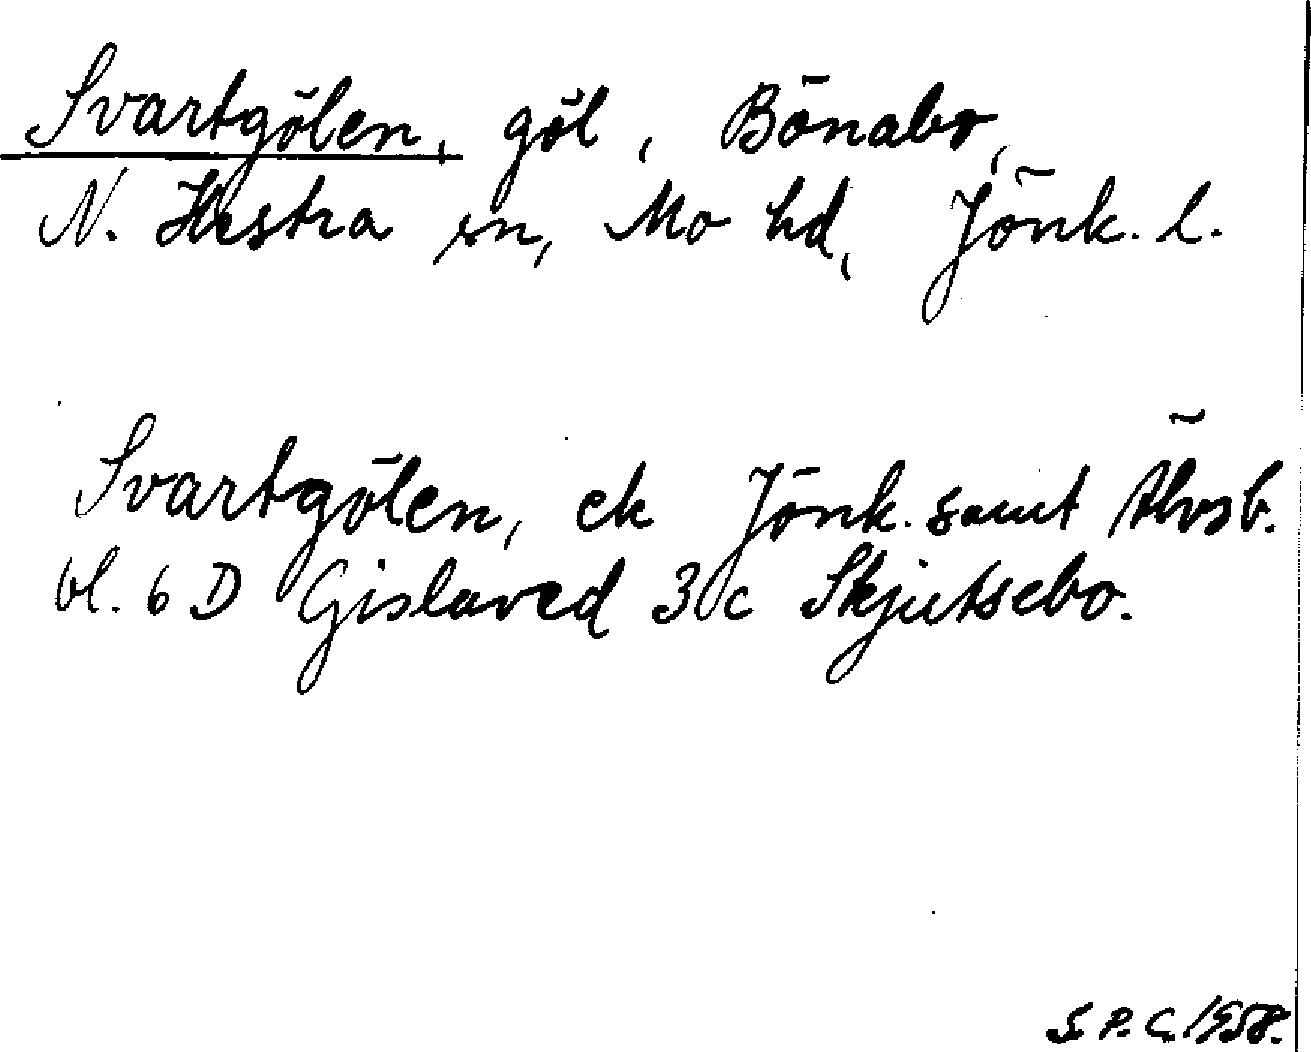 Svartgölen, göl, Bönabo,
N. Hestra sn, Mo hd, Jönk. l.
Svartgölen, ek Jönk. samt Älvsb.
bl. 6 D Gislaved 3 c Skjutsebo.
S. P. C. 1958.